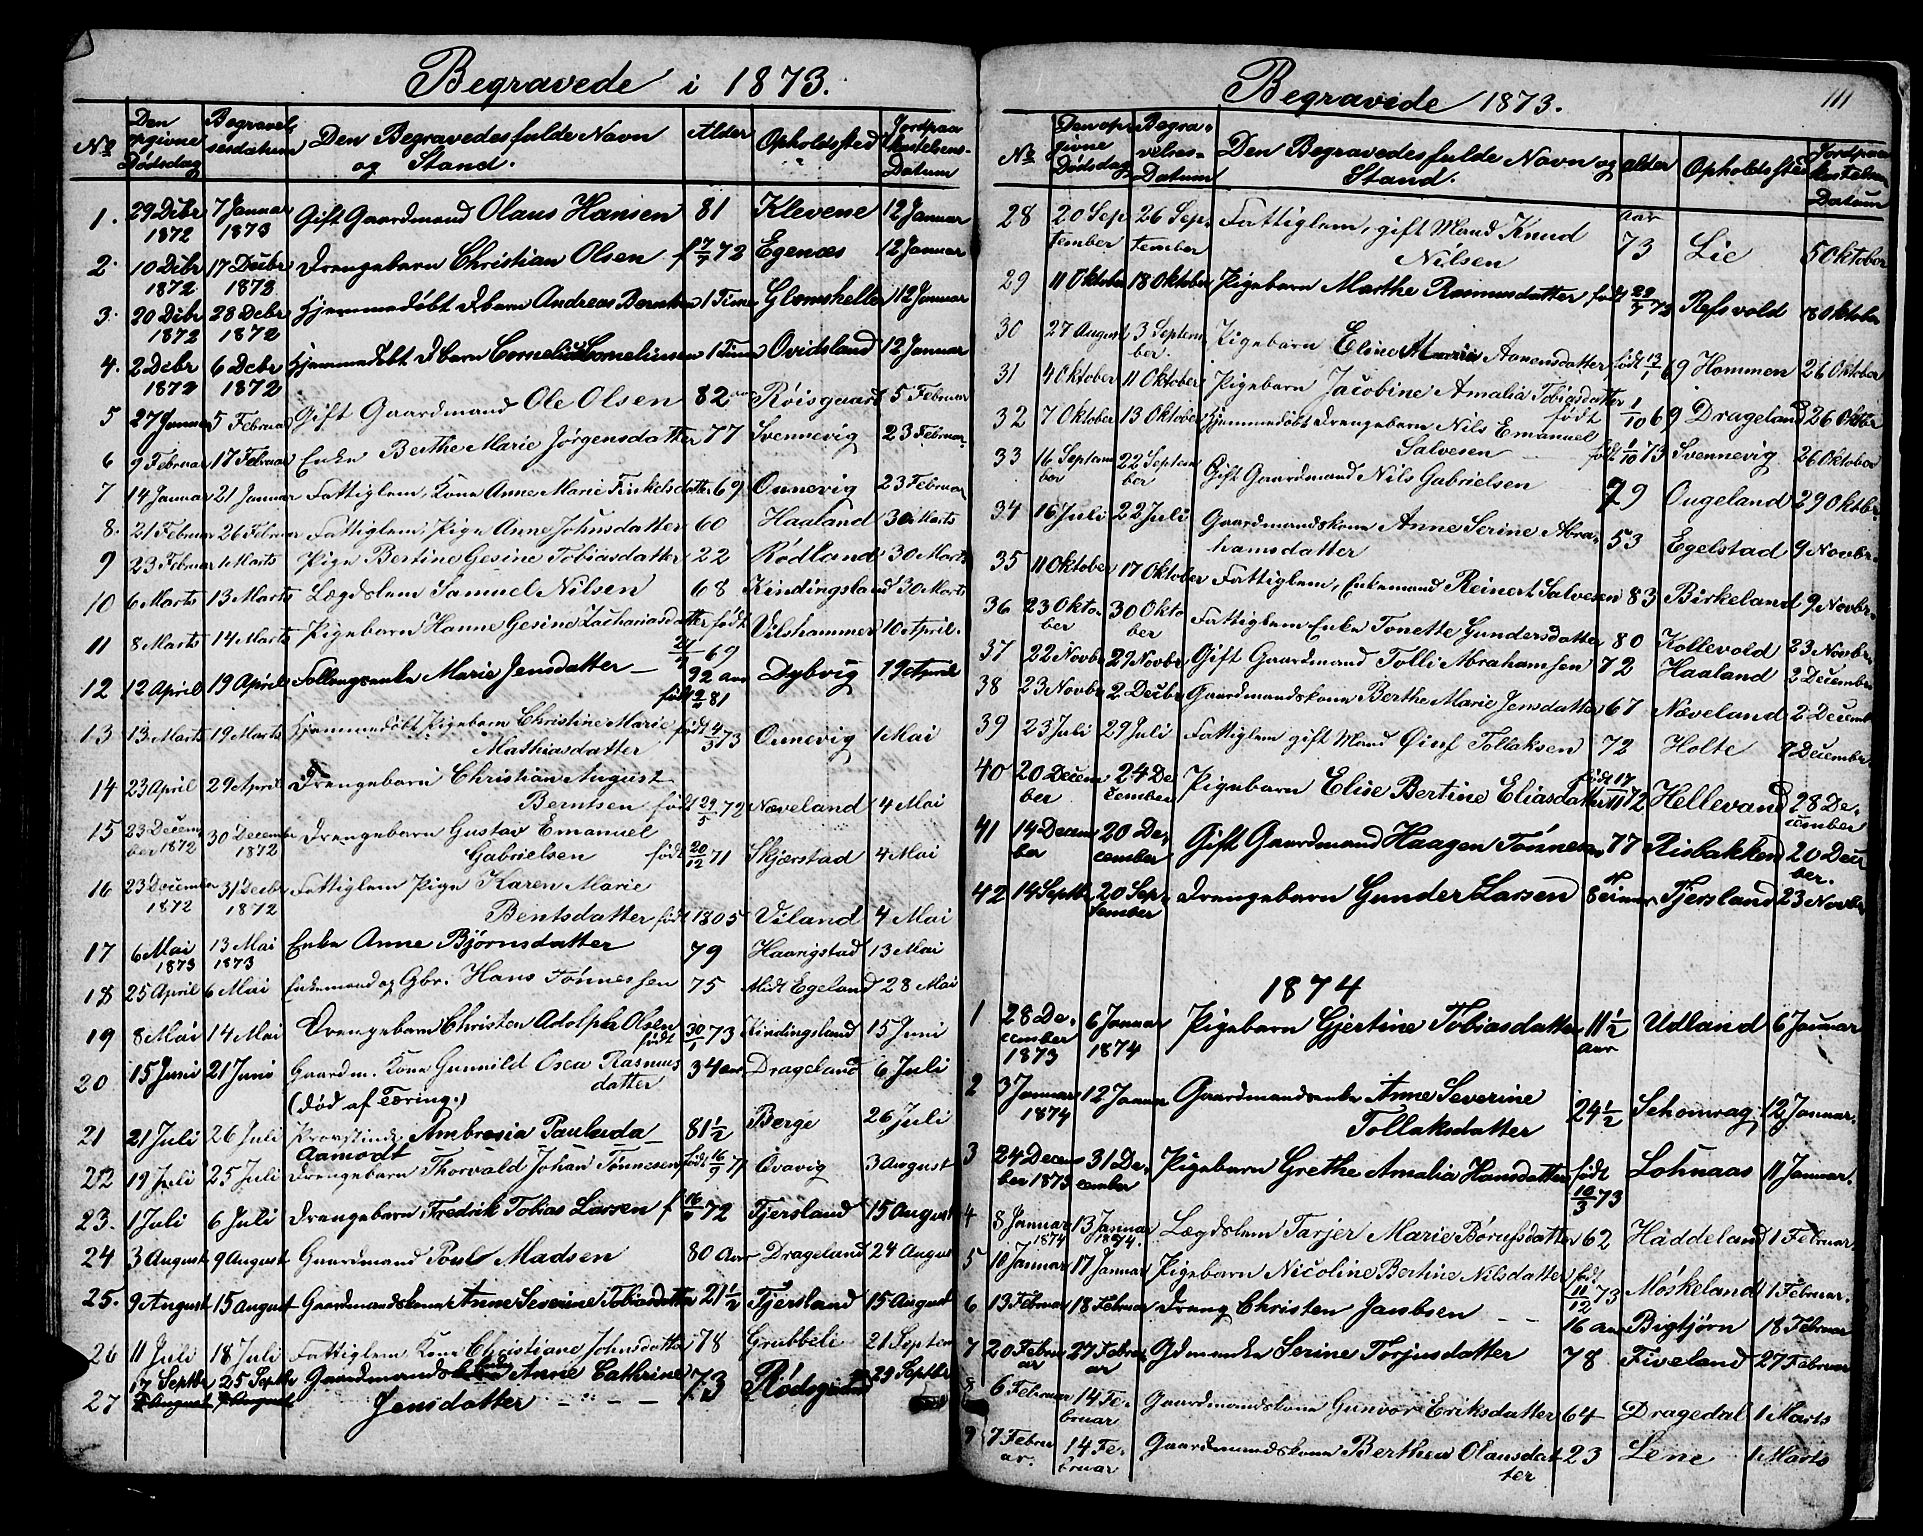 Begravede i 1873.
No Den opgivne Dødsdag Begravelsesdatum Den Begravedes fulde Navn og Stand. Alder Opholdssted Jordpaakastelsens Datum
1. 29 Debr 1872 7 Januar 1873 Gift Gaardmand Olaus Hansen 81 Klevene 12 Januar
2. 10 Debr 1872 17 Decbr 1873 Drengebarn Christian Olsen f 7/7 72 Egenæs 12 Januar
3. 20 Debr 1872 28 Debr 1872 Hjemmedøbt Dbarn Andreas Berntsen 1 Time Glomsheller 12 Januar
4. 2 Debr 1872 6 Debr 1872 Hjemmedøbt Dbarn Cornelius Corneliussen 1 Time Ovidsland 12 Januar
5 27 Januar 5 Februar Gift Gaardmand Ole Olsen 82 Røisgaard 5 Februar
6 9 Februar 17 Februar Enke Berthe Marie Jørgensdatter 77 Svennevig 23 Februar
7 14 Januar 21 Januar Fattiglem, Kone Anne Marie Tinkelsdatter 69 Onnevig 23 Februar
8. 21 Februar 26 Februar Fattiglem Pige Anne Johnsdatter 60 Haaland 30 Marts
9 23 Februar 1 Marts Pige Bertine Gesine Tobiasdatter 22 Rødland 30 Marts
10 6 Marts 13 Marts Lægdslem Samuel Nilsen 68 Kindingsland 30 Marts
11 8 Marts 14 Marts Pigebarn Hanne Gesine Zachariasdatter født 69 Vilshammer 10 April.
12 12 April 19 April Follougsenke Marie Jensdatter 92 aar født 2/2 81 Dybvig 19 April
13 13 Marts 19 Marts Hjemmedøbt Pigebarn Christine Marie
Mathiasdatter født 4/3 73 Onnevig 1 Mai
14 23 April 29 April Drengebarn Christian August
Berntsen født 29/5 72 Næveland 4 Mai
15 23 December 1872 30 December 1872 Drengebarn Gustav Emanuel
Gabrielsen født 20/12 71 Skjærstad 4 Mai
16 23 December 1872 31 Decbr 1872 Fattiglem Pige Karen Marie
Bentsdatter født 1805 Viland 4 Mai
17 6 Mai 1873 13 Mai 1873 Enke Anne Bjørnsdatter 79 Haarigstad 13 Mai
18 25 April 6 Mai Enkemand og Gbr. Hans Tønnessen 75 Midt Egeland 28 Mai
19 8 Mai 14 Mai Drengebarn Christen Adolph Olsen født 30/1 73 Kindingsland 15 Juni
20 15 Juni 21 Juni Gaardm. Kone Gunnild Osea Rasmusdatter 34 aar Drageland 6 Juli
(død af Tæring.)
21 21 Juli 26 Juli Provstinde Ambrosia Pauluda Aamodt 81 1/2 Berge 26 Juli
22 19 Juli 25 Juli Drengebarn Thorvald Johan Tønnesen født 16/9 71 Ovavig 3 August
23. 1 Juli 6 Juli Drengebarn, Fredrik Tobias Larsen f 16/9 72 Tjersland 15 August
24 3 August 9 August Gaardmand Poul Madsen 80 Aar Drageland 24 August
25. 9 August 15 August Gaardmandskone Anne Severine Tobiasdatter 21 1/2 Tjersland 15 August
26 11 Juli 18 Juli Fattiglem Kone Christiane Johnsdatter 78 Grubbeli 21 Septem
27 17 Septbr 25 Septbr Gaardmands Anne Cathrine
Jensdatter 73 29 Septbr
Begravede 1873. 111
No Den opgivne Dødsdag Begravelses-Datum Den Begravedes fulde Navn og Stand. Alder Opholdssted Jordpaakastelsens Datum
28 20 September 26 September Fattiglem, gift Mand Knud
Nilsen aar 73 Lie 5 Oktober
29 11 Oktober 18 Oktober Pigebarn Marthe Rasmusdatter født 29/7 73 Refsvold 18 Oktober
30 27 August 3 September Pigebarn Eline Maria Aanensdatter født 13/1 69 Hommen 26 Oktober
31 4 Oktober 11 Oktober Pigebarn Jacobine Amalia Tobiasdatter født 1/10 69 Drageland 26 Oktbr
32 7 Oktober 13 Oktober Hjemmedøbt Drengebarn Nils Emanuel
Salvesen født 1/10 73 Svennevig 26 Oktober
33 16 September 22 September Gift Gaardmand Nils Gabrielsen 79 Ougeland 29 Oktbr.
34 16 Juli 22 Juli Gaardmandskone Anne Serine Abrahamsdatter 53 Egelstad 9 Novbr.
35 11 Oktober 17 Oktober Fattiglem, Enkemand Reinert Salvesen 83 Birkeland 9 Novbr.
36 23 Oktober 30 Oktober Fattiglem Enke Tonette Gundersdatter 80 Kollevold 23 Novbr.
37 22 Novbr 29 Novbr Gift Gaardmand Tolli Abrahamsen 72 Haaland 3 December
38 23 Novbr 2 Decbr Gaardmandskone Berthe Marie Jensdatter 67 Næveland 2 December
39 23 Juli 29 Juli Fattiglem gift Mand Øiuf Tollaksen 72 Holte 7 December
40 20 December 24 December Pigebarn Elise Bertine Eliasdatter født 17/11 72 Hellevand 28 December
41 14 December 20 December Gift Gaardmand Haagen Tønnesen 77 Risbakken 20 December.
42 14 Septbr 20 September Drengebarn Gunder Larsen Tjersland 23 Novbr
1874
1 28 December 1873 6 Januar 1874 Pigebarn Gjertine Tobiasdatter 11 1/2 aar Udland 6 Januar
2 3 Januar 1874 12 Januar Gaardmandsenke Anne Severine
Tollaksdatter 24 1/2 Schomrag 12 Januar.
3 24 December 1873 31 December Pigebarn Grethe Amalia Hansdatter født 10/3 73 Lohnaas 11 Januar.
4 8 Januar 1874 13 Januar 1874. Lægdslem Tarjer Marie Børufsdatter 62 Häddeland 1 Februar.
5 10 Januar 17 Januar Pigebarn Nicoline Bertine Nilsdatter født 11/12 73 Møskeland 1 Februar.
6 13 Februar 18 Februar Dreng Christen Jacobsen 16 aar Bigbjørn 18 Februar
7 20 Februar 27 Februar Gdmenke Serine Torjusdatter 78 Fiveland 27 Februar
8 6 Februar 14 Februar Gaardmandskone Gunvor Eriksdatter 64 Dragedal 1 Marts
9 7 Februar. 14 Februar Gaardmandskone Berthea Olausdatter 23 Lene 1 Marts